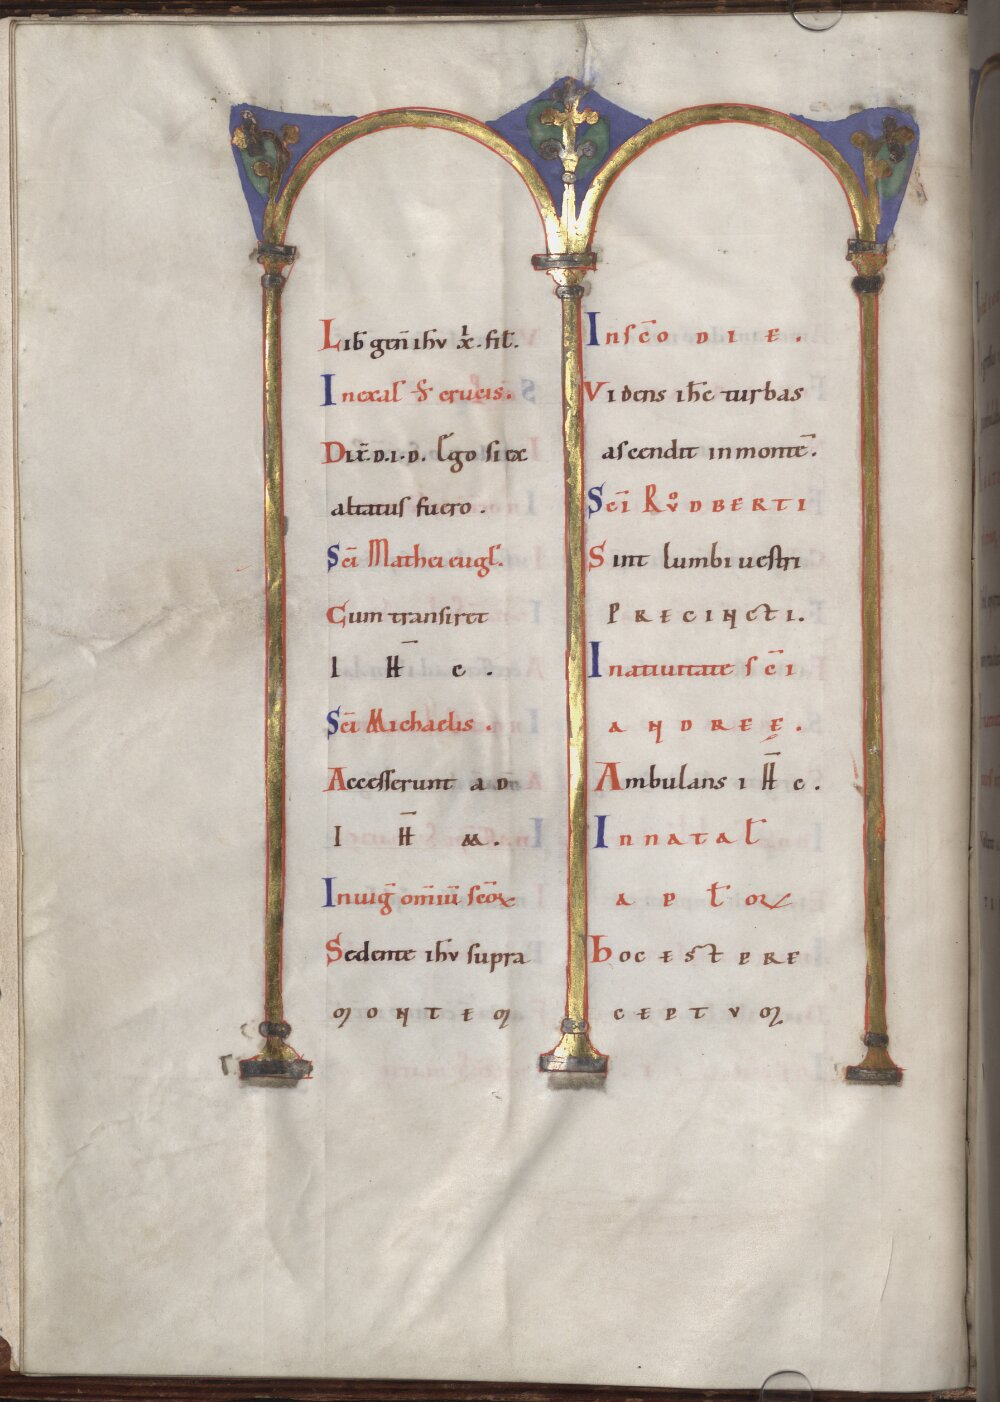 Lib̄ gen̄ ihv x̄ı. fil̄.
In exal̄ s̄ crucis.
Dix̄.d.i.d. Ego si ex
altatus fuero.
Sc̄i Mathei eugl̄.
Cum transiret
I H̄ c.
Sc̄i Michaelis.
Accesserunt ad
I H̄ M.
In uiḡ om̄iū sc̄oꝝ
Sedente ihv supra
MONTEM
In sc̄o DIE.
Videns ih̄c turbas
ascendit in montē.
Sc̄i Rvͦdberti
Sint lumbi uestri
PRECINCTI.
In atiuitate sc̄i
ANDREE.
Ambulans i H̄ c.
In natal̄
a p l̄ oꝝ
hoc est pre
CEPTVM